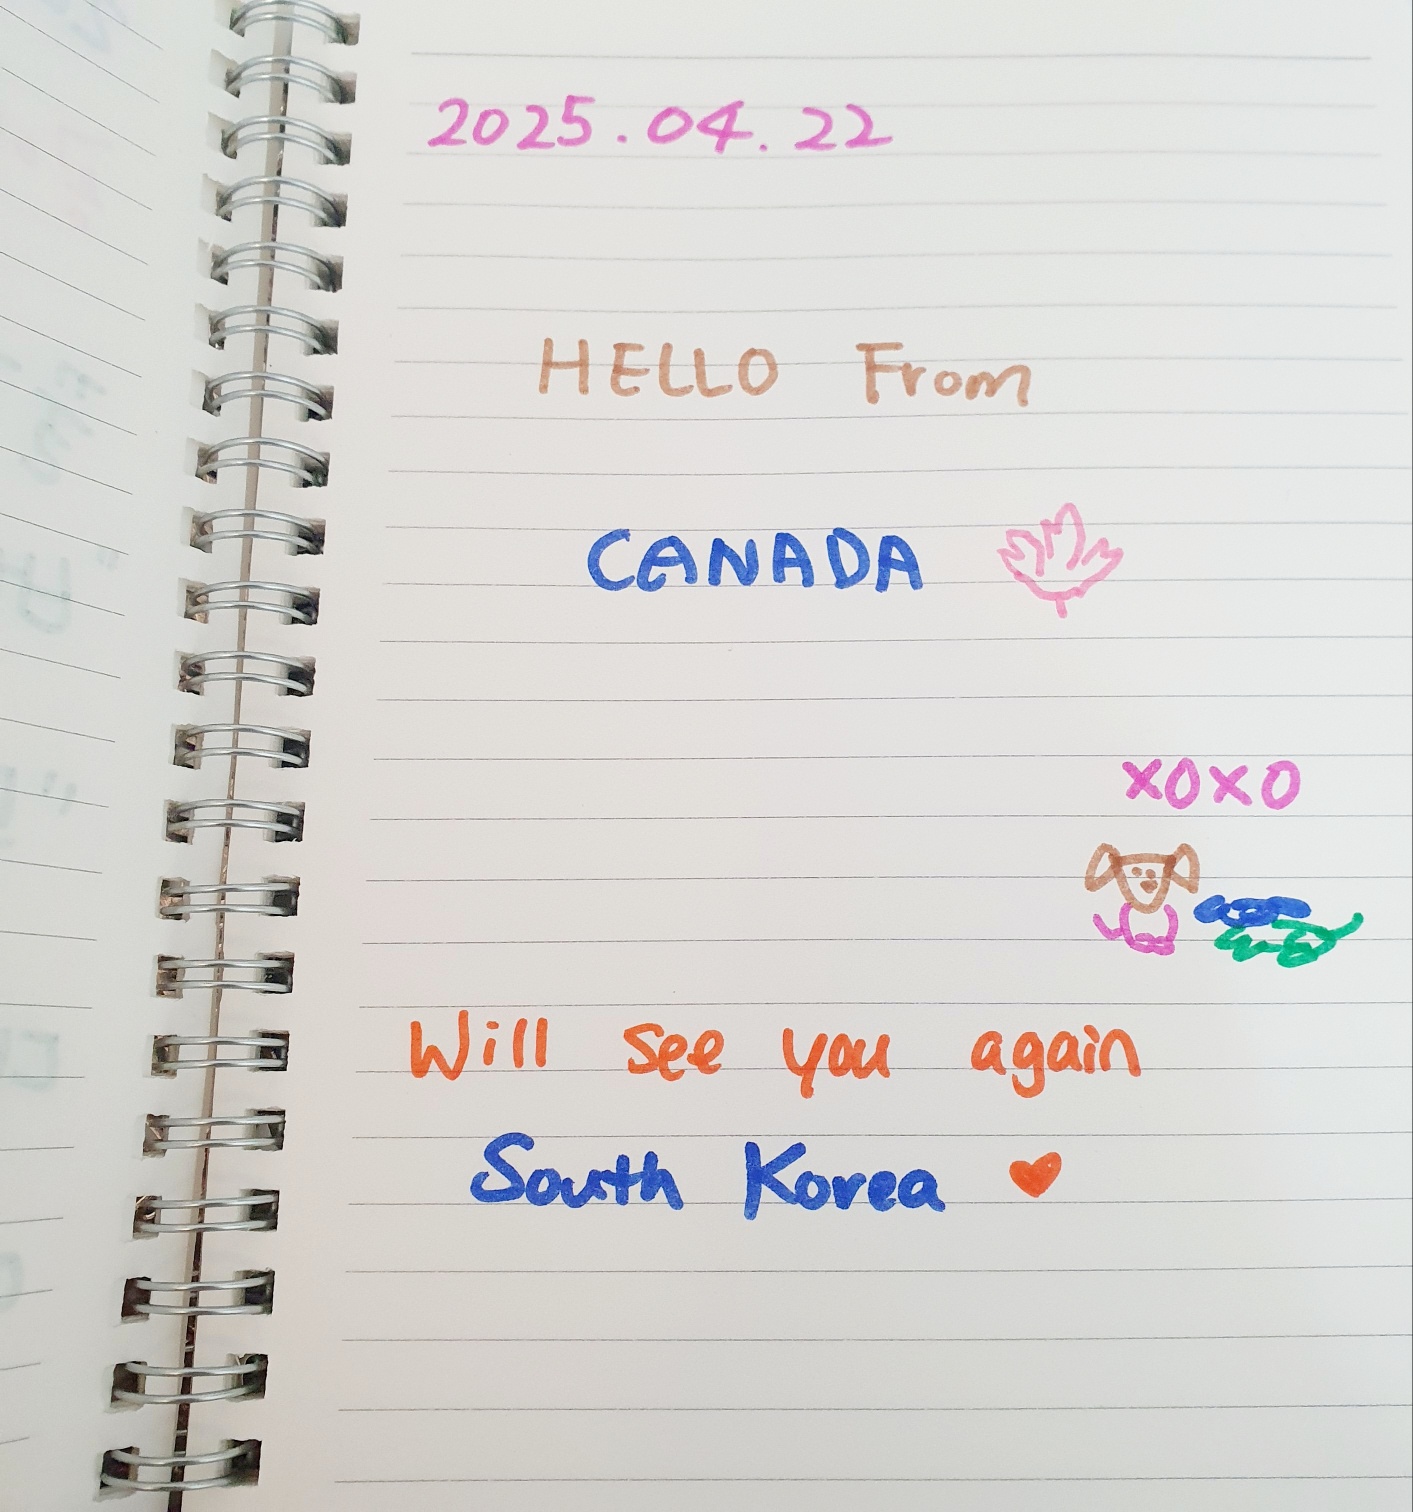 2025.04.22
HELLO From
CANADA
XOXO
Will see you again
South Korea